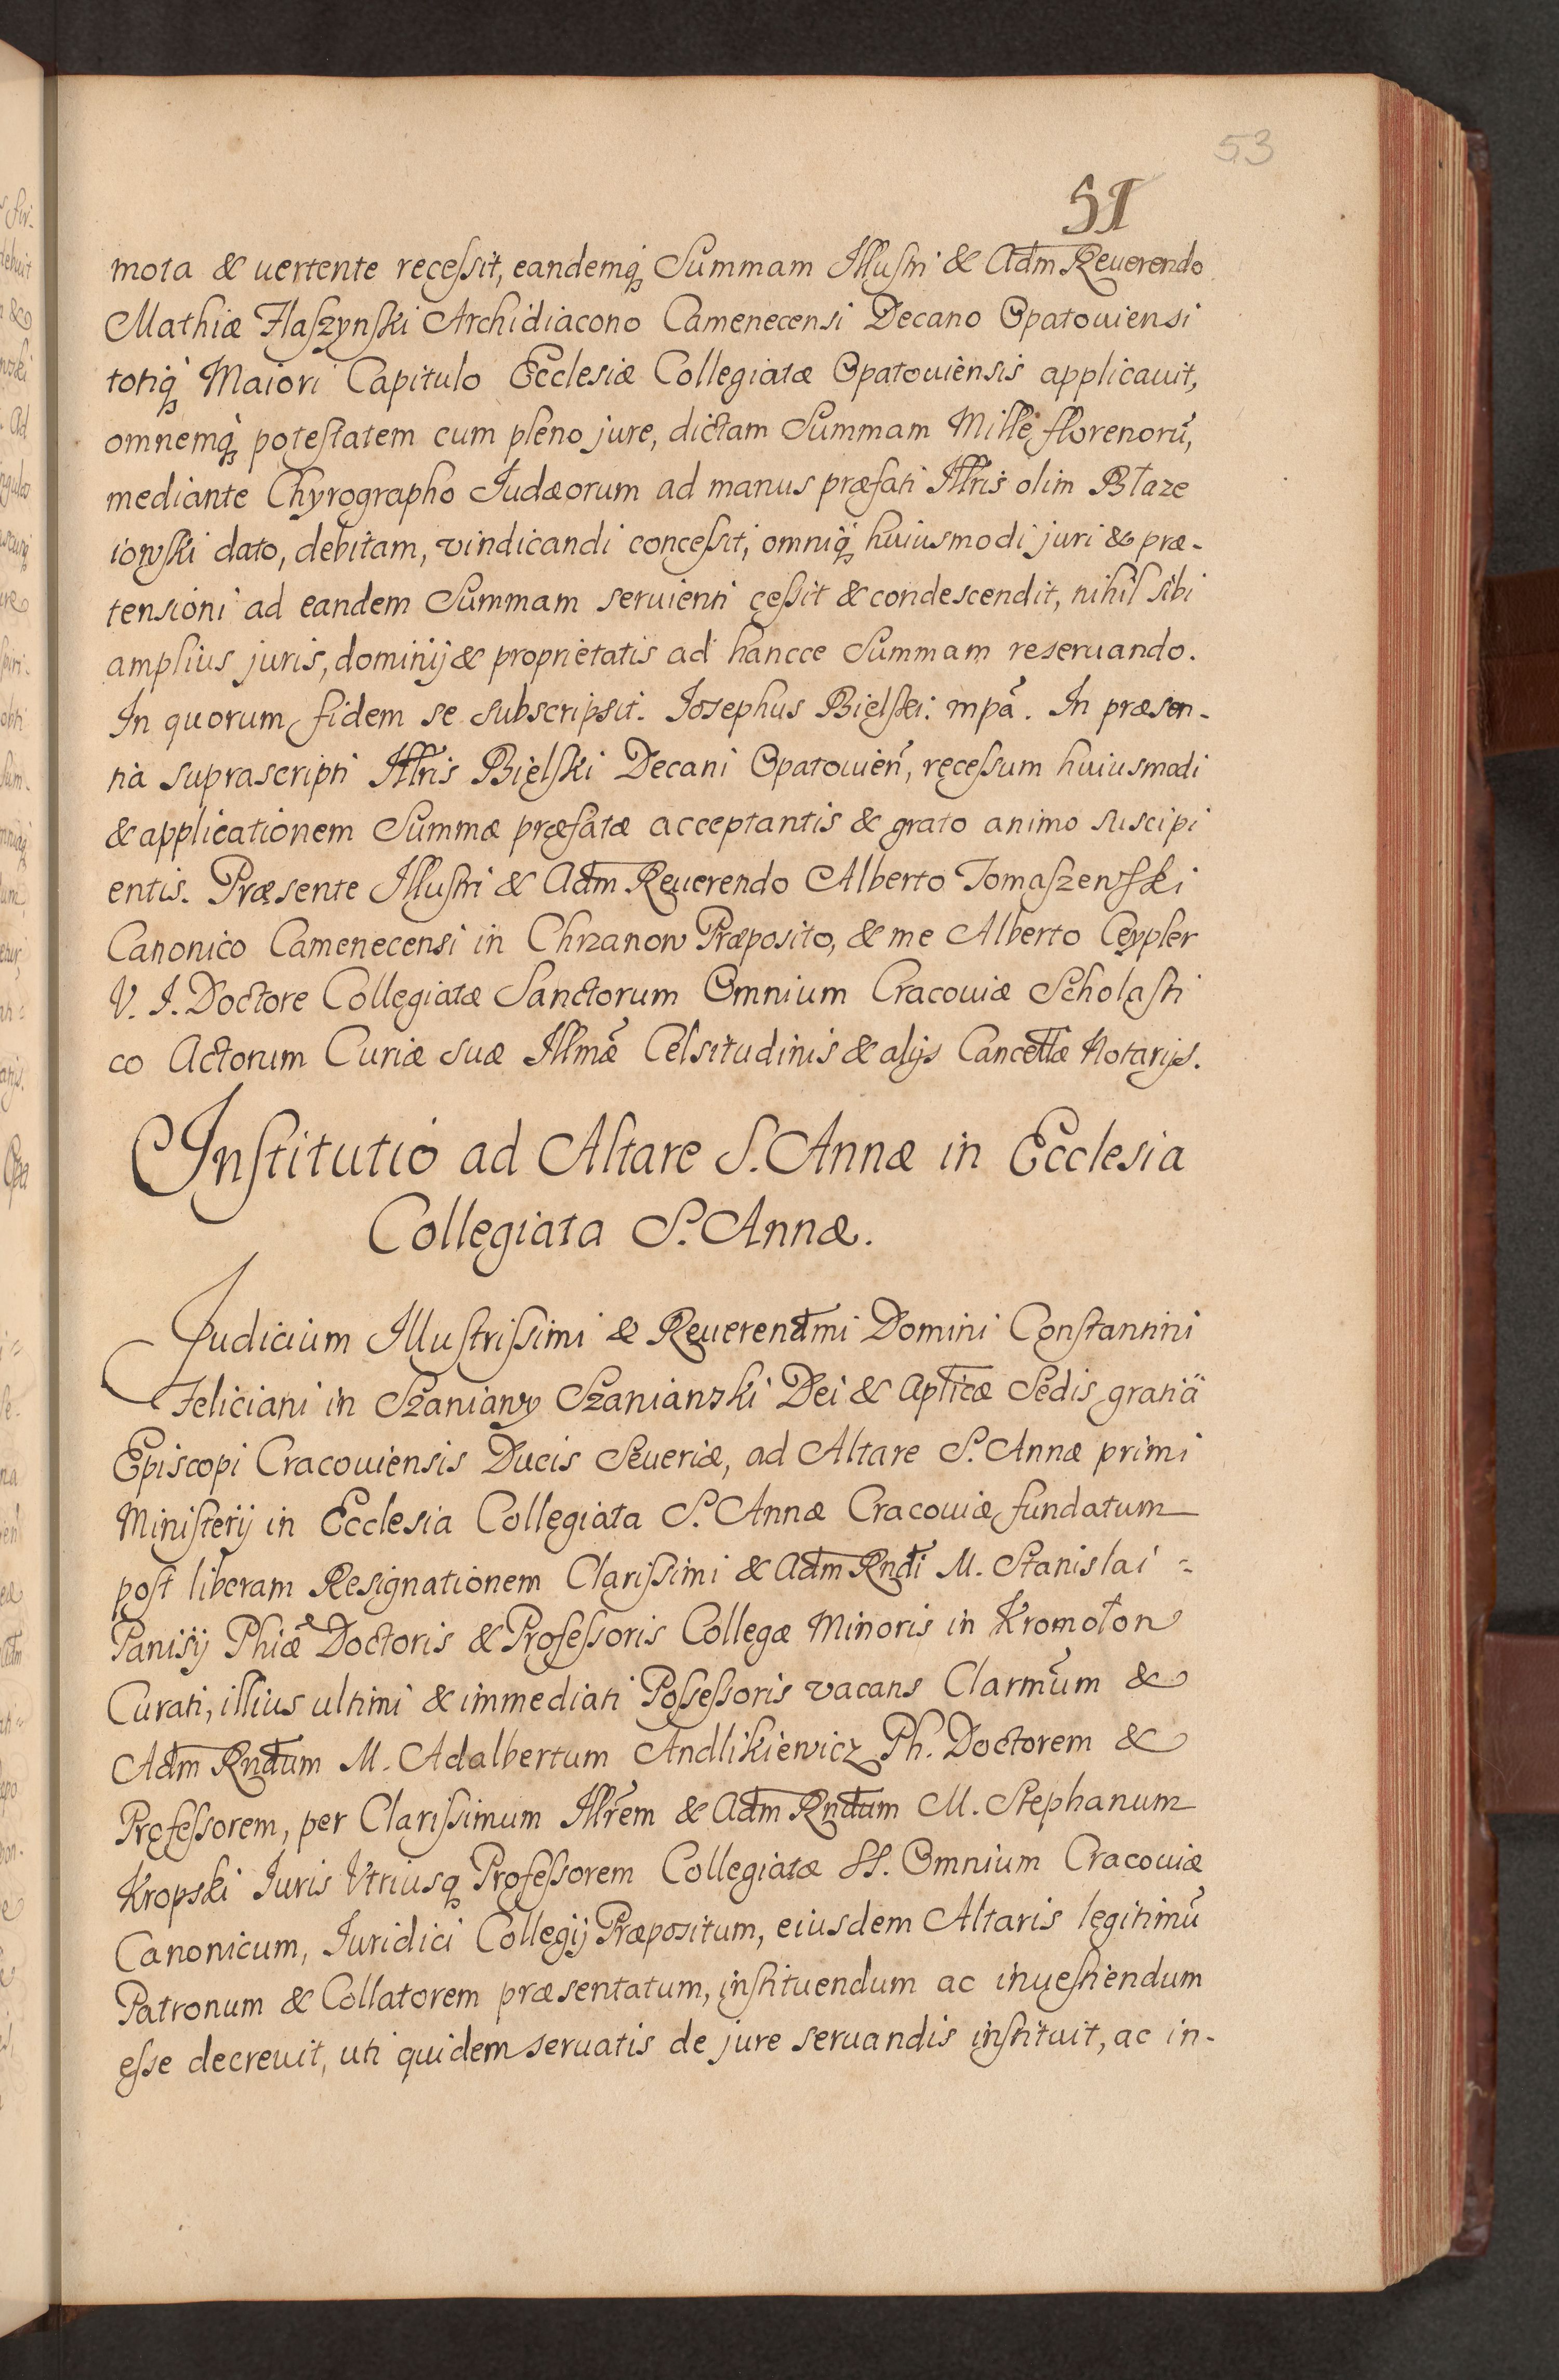 53
51
mota & uertente recessit, eandemq́ Summam Illustri & Adm Reuerendo
Mathiæ Flaszynski Archidiacono Camenecensi Decano Opatouiensi
totiq́ Maiori Capitulo Ecclesiæ Collegiatæ Opatouiensis applicauit,
omnemq́ potestatem cum pleno jure, dictam Summam Mille florenorū,
mediante Chyrographo Iudæorum ad manus præfati Illris olim Błaze
iowski dato, debitam, vindicandi concessit, omniq́ huiusmodi juri & præ-
tensioni ad eandem Summam seruienti cessit & condescendit, nihil sibi
amplius juris, dominij & proprietatis ad hancce Summam reseruando.
In quorum fidem se subscripsit. Iosephus Bielski. mpã. In præsen-
tia suprascripti Illris Bielski Decani Opatouień, recessum huiusmodi
& applicationem Summæ præfatæ acceptantis & grato animo suscipi
entis. Præsente Illustri & Adm Reuerendo Alberto Tomaszewski
Canonico Camenecensi in Chrzanow Præposito, & me Alberto Ceypler
V. I. Doctore Collegiatæ Sanctorum Omnium Cracouiæ Scholasti
co Actorum Curiæ suæ Illmæ̃ Celsitudinis & alijs Cancellæ Notarijs.
Institutio ad Altare S. Annæ in Ecclesia
Collegiata S. Annæ.
Iudicium Illustrissimi & Reuerendmi Domini Constantini
Feliciani in Szaniawy Szaniawski Dei & Aplicæ Sedis gratiä
Episcopi Cracouiensis Ducis Seueriæ, ad Altare S. Annæ primi
Ministerij in Ecclesia Collegiata S. Annæ Cracouiæ fundatum
post liberam Resignationem Clarissimi & Adm Rndi M. Stanislai =
Panisij Phiæ Doctoris & Professoris Collegæ Minoris in Kromołow
Curati, illius ultimi & immediati Possessoris vacans Clarmūm &
Adm Rndum M. Adalbertum Andlikiewicz Ph. Doctorem &
Professorem, per Clarissimum Illrem & Adm Rndum M. Stephanum
Kropski Iuris Vtriusq Professorem Collegiatæ SS. Omnium Cracouiæ
Canonicum, Iuridici Collegij Præpositum, eiusdem Altaris legitimū
Patronum & Collatorem præsentatum, instituendum ac inuestiendum
esse decreuit, uti quidem seruatis de jure seruandis instituit, ac in-